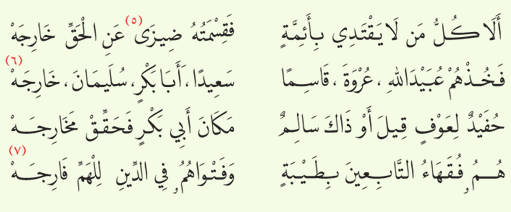 أَلَا كُلُّ مَن لَا يَقْتَدِي بِأَئِمَّةٍ فَقِسْمَتُهُ ضِيزَى(٥) عَنِ الْحَقِّ خَارِجَهْ
فَخُذْهُمْ عُبَيْدَاللهِ ، عُرْوَةَ ، قَاسِمًا سَعِيدًا، أَبَا بَكْرٍ، سُلَيمَانَ، خَارِجَهْ(٦)
حُفَيْدٌ لِعَوْفٍ قِيلَ أَوْ ذَاكَ سَالِمٌ مَكَانَ أَبِي بَكْرٍ فَحَقِّقْ مَخَارِجَهْ
هُمُ فُقَهَاءُ التَّابِعِينَ بِطَيْبَةٍ وَفَتْوَاهُمُ فِي الدِّينِ لِلْهَمِّ فَارِجَهْ(٧)